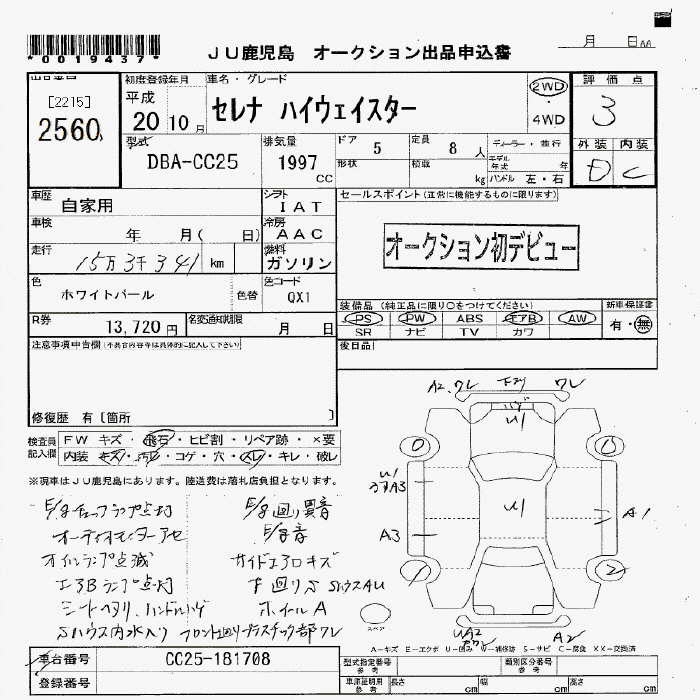 *0019437*
JU鹿児島 オークション出品申込書
月 日
出品番号
[2215]
2560
初度登録年月
平成
20 10月
車名・グレード
セレナ ハイウェイスター
2WD
・
4WD
評価点
3
外装 内装
D C
型式
DBA-CC25
排気量
1997
CC
ドア
5
定員
8 人
形状
積載
kg
ディーラー・並行
モデル年式 年
ハンドル 左・右
車歴
自家用
シフト
IAT
セールスポイント(正常に機能するものに限ります)
オークション初デビュー
車検
年 月( 日)
冷房
AAC
走行
15万3千341 km
燃料
ガソリン
色
ホワイトパール
色替
色コード
QX1
R券
13,720円
名変通知期限
月 日
装備品(純正品に限り○をつけてください)
PS PW ABS エアB AW
SR ナビ TV カワ
新車保証書
有・無
注意事項申告欄(不具合内容等は具体的に記入して下さい)
後日品
修復歴 有〔箇所 〕
検査員
記入欄
FW キズ・飛石・ヒビ割・リペア跡・×要
内装・キズ・汚れ・コゲ・穴・スレ・キレ・破レ
※現車はJU鹿児島にあります。陸送費は落札店負担となります。
E/gチェックランプ点灯
E/g廻り異音
オイルランプ点滅
サイドエアロキズ
エアBランプ点灯
ホイールA
A2.ワレ
ワレ
U1
A3
U1
U1
A1
A2
スペア
A-キズ E-エクボ U-凹み W-補修跡 S-サビ C-腐食 XX-交換済
車台番号
CC25-181708
登録番号
型式指定番号
参考
類別区分番号
参考
車庫証明用
参考
長さ cm 幅 cm 高さ cm